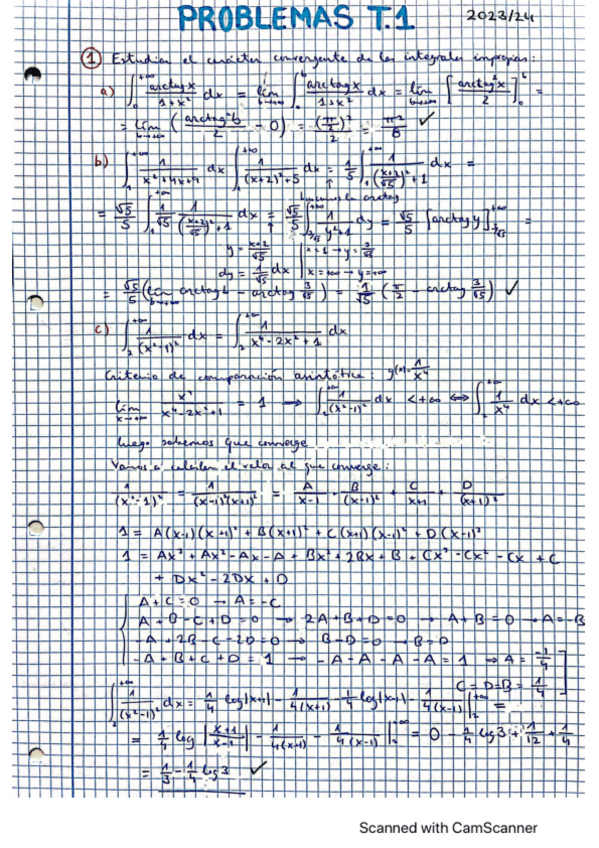 PROBLEMAS T.1 2023/24
① Estudiar el carácter convergente de las integrales impropias:
a) ∫₀^{+∞} arctag x / (1+x²) dx = lím_{b→+∞} ∫₀^b arctag x / (1+x²) dx = lím_{b→+∞} [arctag² x / 2]₀^b =
= lím_{b→+∞} (arctag² b / 2 - 0) = (π/2)² / 2 = π²/8 ✓
b) ∫₁^{+∞} 1/(x²+4x+9) dx ∫₁^{+∞} 1/((x+2)²+5) dx = 1/5 ∫₁^{+∞} 1/(((x+2)/√5)²+1) dx =
buscamos la arctag
= √5/5 ∫₁^{+∞} 1/√5 · 1/(((x+2)/√5)²+1) dx = √5/5 ∫_{3/√5}^{+∞} 1/(y²+1) dy = √5/5 [arctag y]_{3/√5}^{+∞} =
y = (x+2)/√5 | x=1 → y = 3/√5
dy = 1/√5 dx | x=+∞ → y=+∞
= √5/5 (lím_{b→+∞} arctag b - arctag 3/√5) = 1/√5 (π/2 - arctag 3/√5) ✓
c) ∫₂^{+∞} 1/(x²-1)² dx = ∫₂^{+∞} 1/(x⁴-2x²+1) dx
Criterio de comparación asintótica: g(x)=1/x⁴
lím_{x→+∞} x⁴/(x⁴-2x²+1) = 1 → ∫₂^{+∞} 1/(x²-1)² dx < +∞ ⟺ ∫₂^{+∞} 1/x⁴ dx < +∞
luego sabemos que converge
Vamos a calcular el valor al que converge:
1/(x²-1)² = 1/((x-1)²(x+1)²) = A/(x-1) + B/(x-1)² + C/(x+1) + D/(x+1)²
1 = A(x-1)(x+1)² + B(x+1)² + C(x+1)(x-1)² + D(x-1)²
1 = Ax³ + Ax² - Ax - A + Bx² + 2Bx + B + Cx³ - Cx² - Cx + C
+ Dx² - 2Dx + D
A + C = 0 → A = -C
A + B - C + D = 0 → 2A + B + D = 0 → A + B = 0 → A = -B
-A + 2B - C - 2D = 0 → B - D = 0 → B = D
-A + B + C + D = 1 → -A - A - A - A = 1 → A = -1/4
C = D = B = 1/4
∫₂^{+∞} 1/(x²-1)² dx = 1/4 log|x+1| - 1/(4(x+1)) - 1/4 log|x-1| - 1/(4(x-1)) |₂^{+∞} =
= 1/4 log |(x+1)/(x-1)| - 1/(4(x+1)) - 1/(4(x-1)) |₂^{+∞} = 0 - 1/4 log 3 + 1/12 + 1/4
= 1/3 - 1/4 log 3 ✓
Scanned with CamScanner